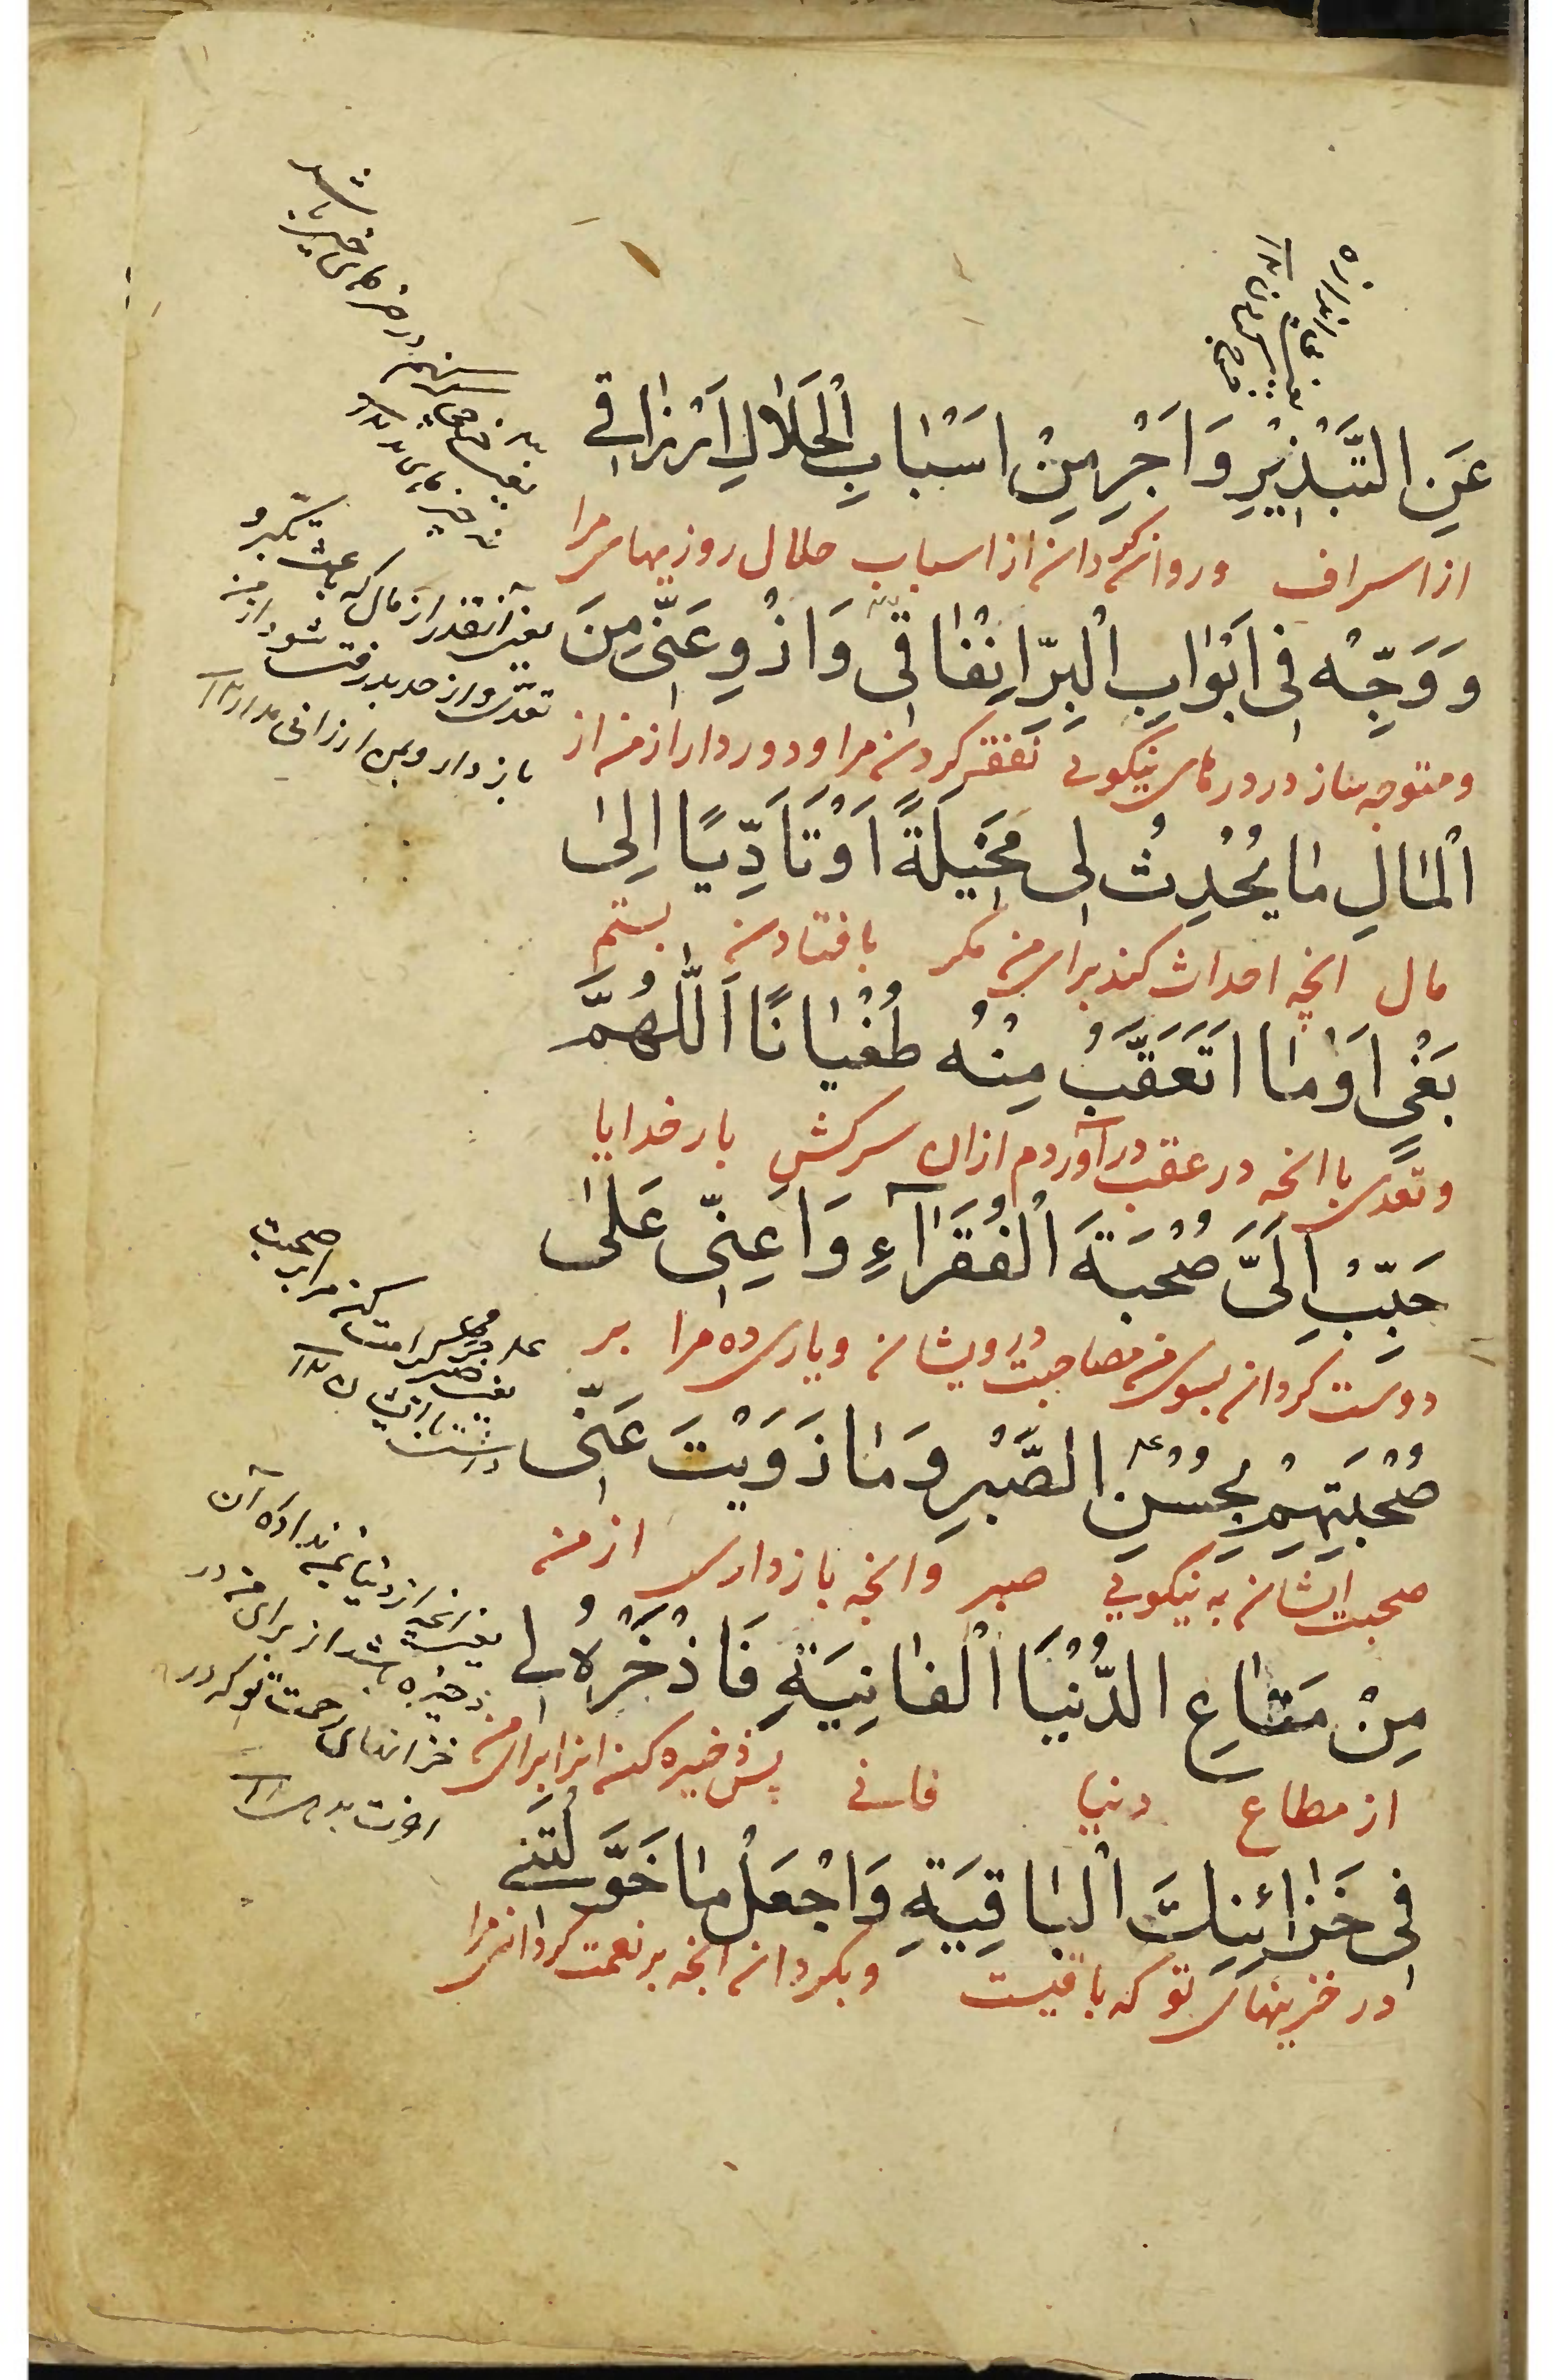 عَنِ التَّبْذِيْرِ وَاَجْرِ مِنْ اَسْبٰابِ الْحَلَالِ اَرْزٰاقِي
از اسراف وروان گردان از اسباب حلال روزیهای مرا
وَوَجِّهْ فِي اَبْوٰابِ الْبِرِّ اِنْفٰاقِي وَاذْوِ عَنِّي مِنَ
ومتوجه ساز در درهای نیکویی نفقه کردن مرا ودور دار از من از
الْمٰالِ مٰا يُحْدِثُ لِي مَخِيْلَةً اَوْ تَاَدِّيًا اِلىٰ
مال انچه احداث کند برای من مکر یا فتادن بستم
بَغْيٍ اَوْ مٰا اَتَعَقَّبُ مِنْهُ طُغْيٰانًا اَللّٰهُمَّ
وتعدی یا انچه در عقب درآوردم ازان سرکشی بار خدایا
حَبِّبْ اِلَيَّ صُحْبَةَ الْفُقَرٰآءِ وَاَعِنِّي عَلىٰ
دوست گردان بسوی من مصاحبت درویشان ویاری ده مرا بر
صُحْبَتِهِمْ بِحُسْنِ الصَّبْرِ وَمٰا زَوَيْتَ عَنِّي
صحبت ایشان به نیکویی صبر وانچه بازداری از من
مِنْ مَتٰاعِ الدُّنْيَا الْفٰانِيَةِ فَاذْخَرْهُ لِي
از مطاع دنیا فانی پس ذخیره کن انرا برای من
فِي خَزٰائِنِكَ الْبٰاقِيَةِ وَاجْعَلْ مٰا خَوَّلْتَنِي
در خزینهای تو که باقیست وبگردان انچه بر نعمت گردان مرا
در خرهای خیر باشد
یعنی آنقدر از مال که باعث تکبر و
تعدی واز حد بدر رفتن شود از من
باز دار وبمن ارزانی مدار
کرامت کن مرا بر صحبت
یعنی انچه از دنیا بمن نداده آن
ذخیره باشد از برای من در
خزانهای رحمت تو که در
اخرت بدهی